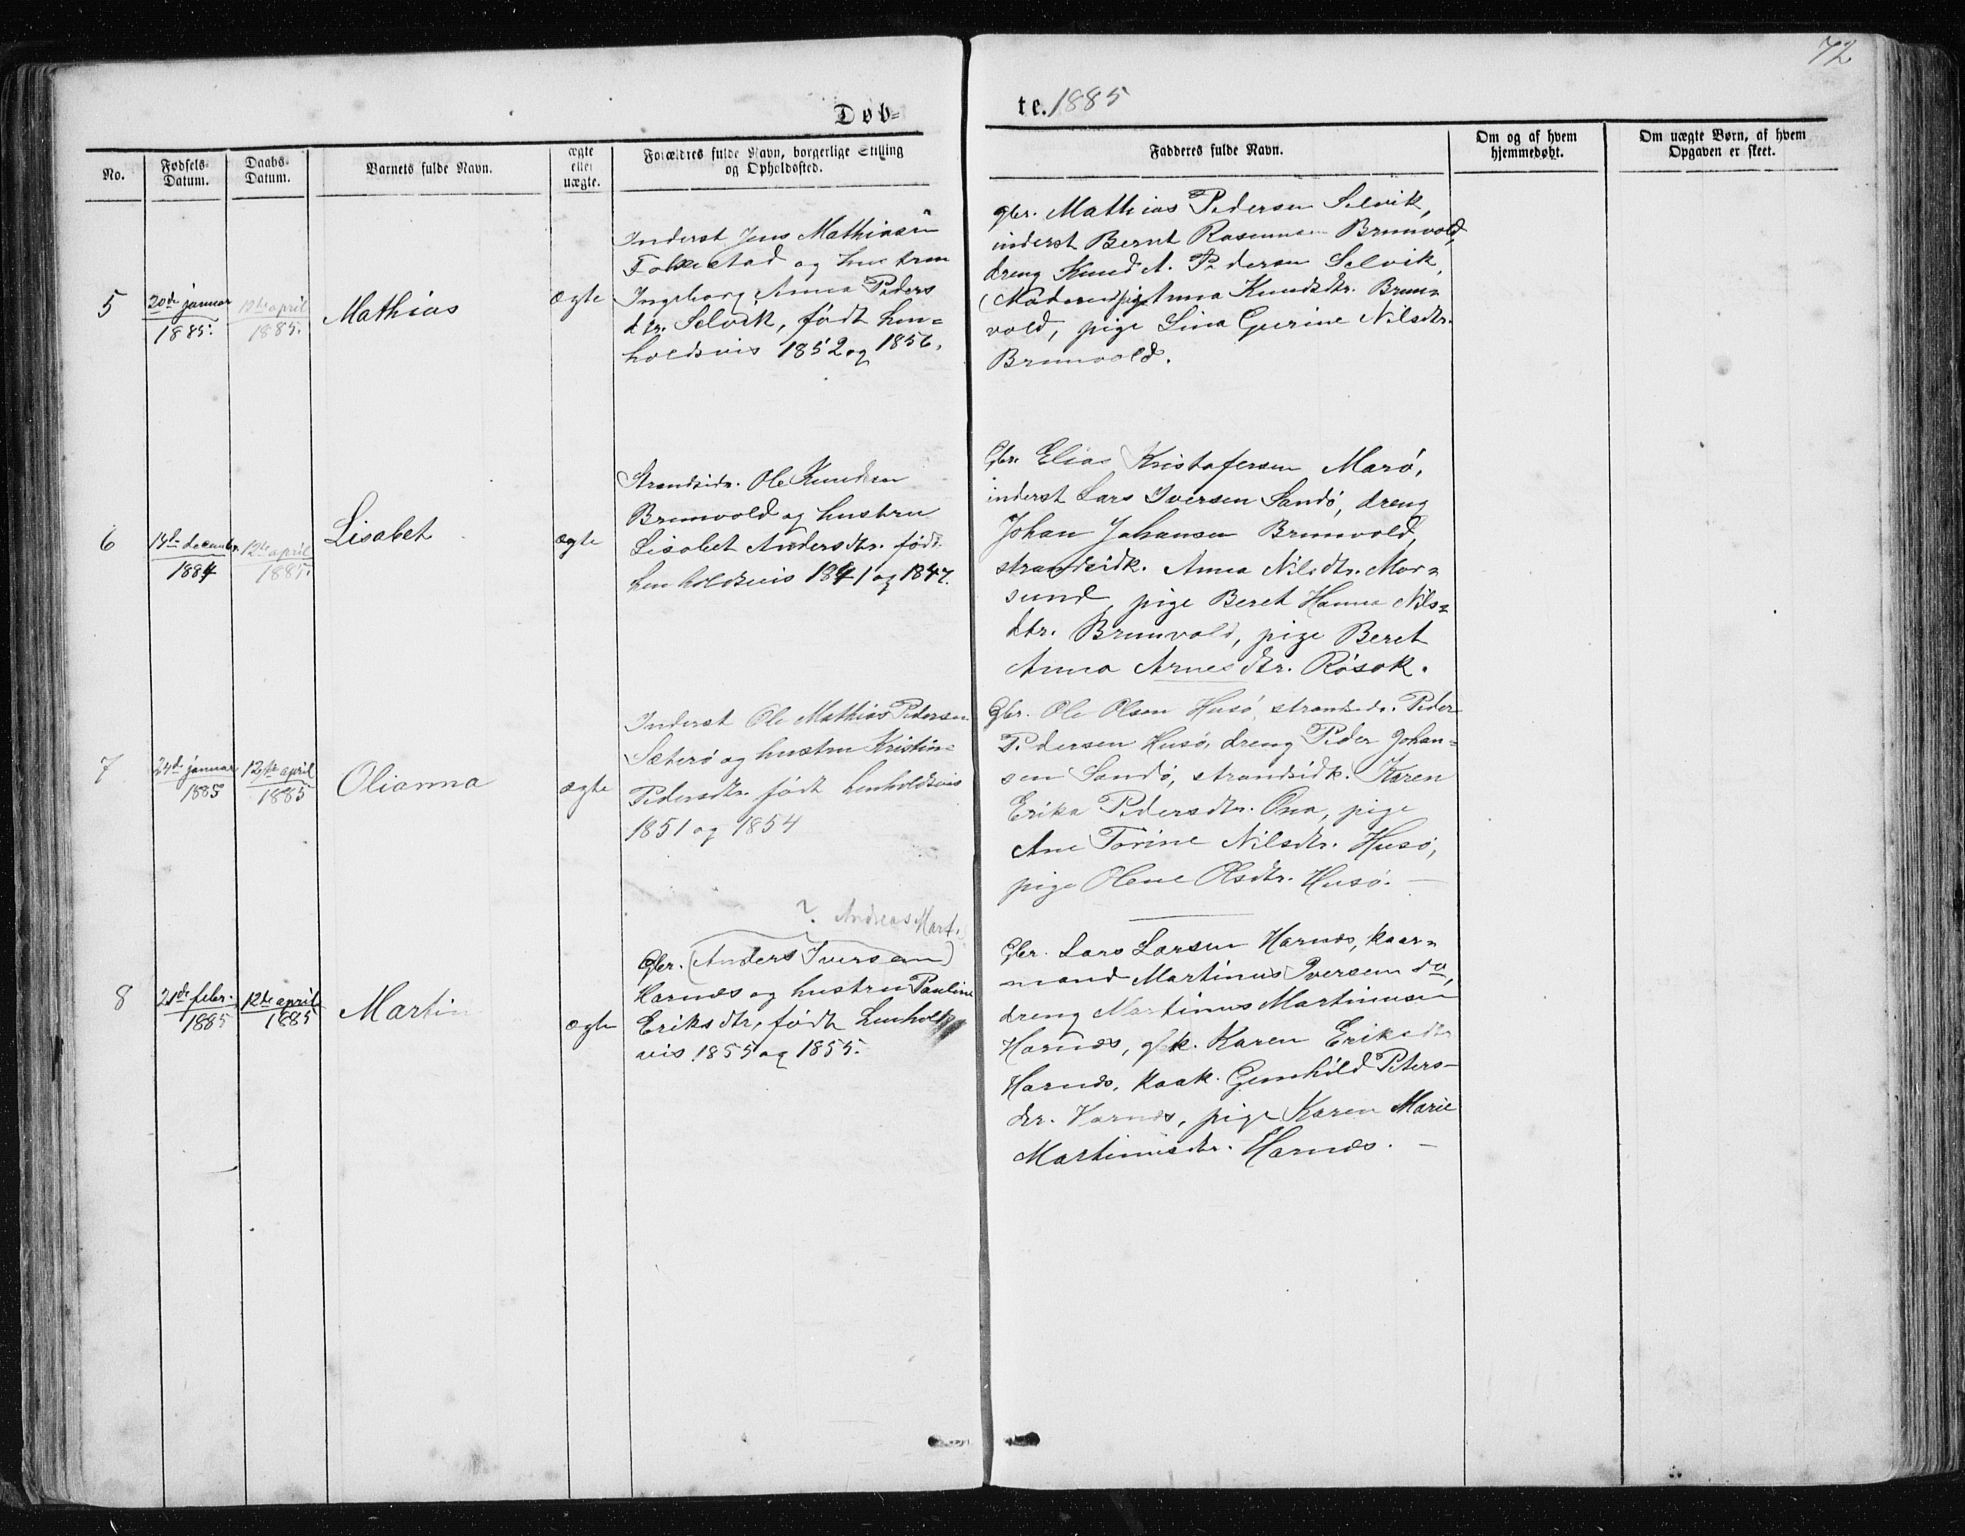 72
Døb=
te. 1885
No.
Fødsels-
Datum.
Daabs-
Datum.
Barnets fulde Navn.
ægte
eller
uægte.
Forældres fulde Navn, borgerlige Stilling
og Opholdssted.
Fadderes fulde Navn.
Om og af hvem
hjemmedøbt.
Om uægte Børn, af hvem
Opgaven er skeet.
5
20de januar
1885.
12te april
1885.
Mathias
ægte
Inderst Jens Mathiasen
Folkestad og hustru
Ingeborg Anna Peders
dtr. Selvik, født hen=
holdsvis 1852 og 1856.
gbr. Mathias Pedersen Selvik,
inderst Bernt Rasmussen Brunvold,
dreng Knud A. Pedersen Selvik,
pige Anna Knudsdtr. Brun=
vold, pige Lina Gurine Nilsdtr.
Brunvold.
6
14de decembr.
1884
12te april
1885.
Lisabet
ægte
Strandsidr. Ole Knudsen
Brunvold og hustru
Lisabet Andersdtr. født
henholdsvis 1841 og 1847.
Gbr. Elias Kristofersen Marø,
inderst Lars Iversen Sandø, dreng
Johan Johansen Brunvold,
strandsidk. Anna Nilsdtr. Mor=
sund, pige Beret Hanna Nils=
dtr. Brunvold, pige Beret
Anna Arnesdtr. Røsok.
7
24de januar
1885
12te april
1885
Olianna
ægte
Inderst Ole Mathias Pedersen
Sæterø og hustru Kristin=
Pedersdtr. født henholdsvis
1851 og 1854
Gbr. Ole Olsen Husø, strandsidr. Peder
Pedersen Husø, dreng Peder Johan=
sen Sandø, strandsidk. Karen
Erika Pedersdtr. Ona, pige
Ane Torine Nilsdtr. Husø,
pige Olene Olsdtr. Husø. —
8
21de febr.
1885
12te april
1885
Martin
ægte
? Andreas Mart.
Gbr. (Anders Iversen)
Harnes og hustru Pauline
Eriksdtr, født henholds
vis 1855 og 1855.
Gbr. Lars Larsen Harnes, kaar=
mand Martinus Iversen do,
dreng Martinus Martinusen
Harnes, gk. Karen Eriksdtr
Harnes, kaak. Gunhild Peters=
dtr. Harnes, pige Karen Marie
Martinusdtr. Harnes. —